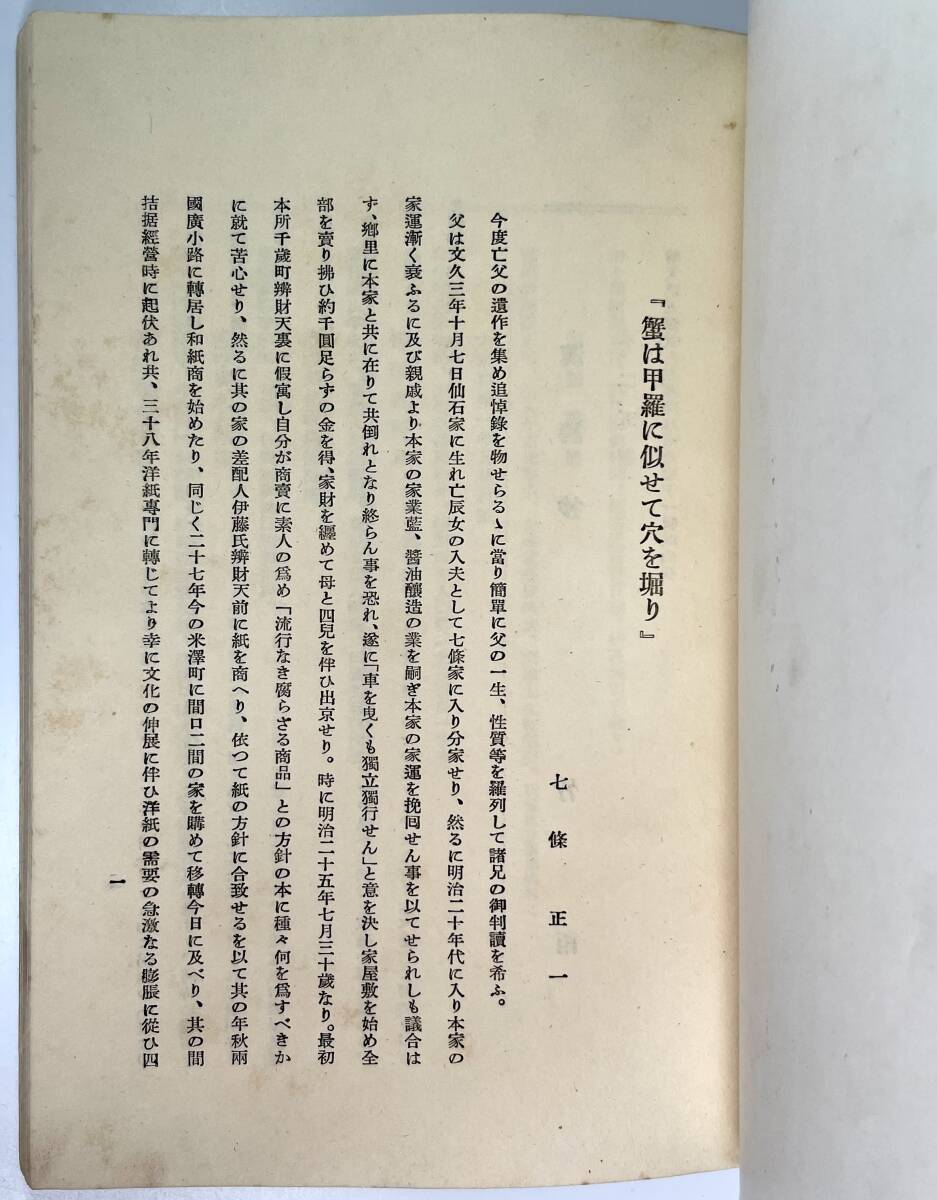 『蟹は甲羅に似せて穴を堀り』
七條正一
今度亡父の遺作を集め追悼錄を物せらるゝに當り簡單に父の一生、性質等を羅列して諸兄の御判讀を希ふ。
父は文久三年十月七日仙石家に生れ亡辰女の入夫として七條家に入り分家せり、然るに明治二十年代に入り本家の
家運漸く衰ふるに及び親戚より本家の家業藍、醬油釀造の業を嗣ぎ本家の家運を挽囘せん事を以てせられしも議合は
ず、鄕里に本家と共に在りて共倒れとなり終らん事を恐れ、遂に「車を曳くも獨立獨行せん」と意を決し家屋敷を始め全
部を賣り拂ひ約千圓足らずの金を得、家財を纒めて母と四兒を伴ひ出京せり。時に明治二十五年七月三十歲なり。最初
本所千歲町辨財天裏に假寓し自分が商賣に素人の爲め「流行なき腐らざる商品」との方針の本に種々何を爲すべきか
に就て苦心せり、然るに其の家の差配人伊藤氏辨財天前に紙を商へり、依つて紙の方針に合致せるを以て其の年秋兩
國廣小路に轉居し和紙商を始めたり、同じく二十七年今の米澤町に間口二間の家を購めて移轉今日に及べり、其の間
拮据經營時に起伏あれ共、三十八年洋紙專門に轉じてより幸に文化の伸展に伴ひ洋紙の需要の急激なる膨脹に從ひ四
一